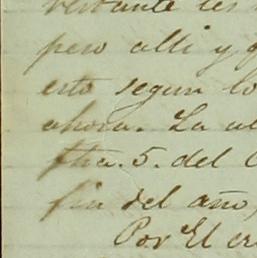 pero alli y
esto segun lo
ahora. La
fha. 5. del
fin del año,
Por El